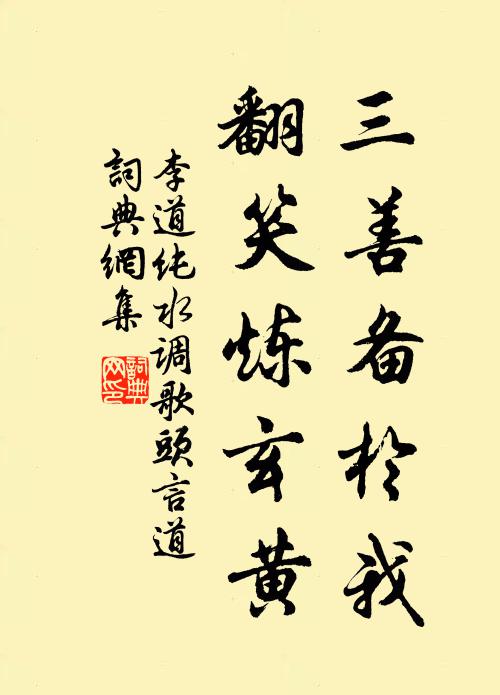 三善备於我
翻笑炼玄黄
李道纯水调歌头言道
词典網集
詞典
网印